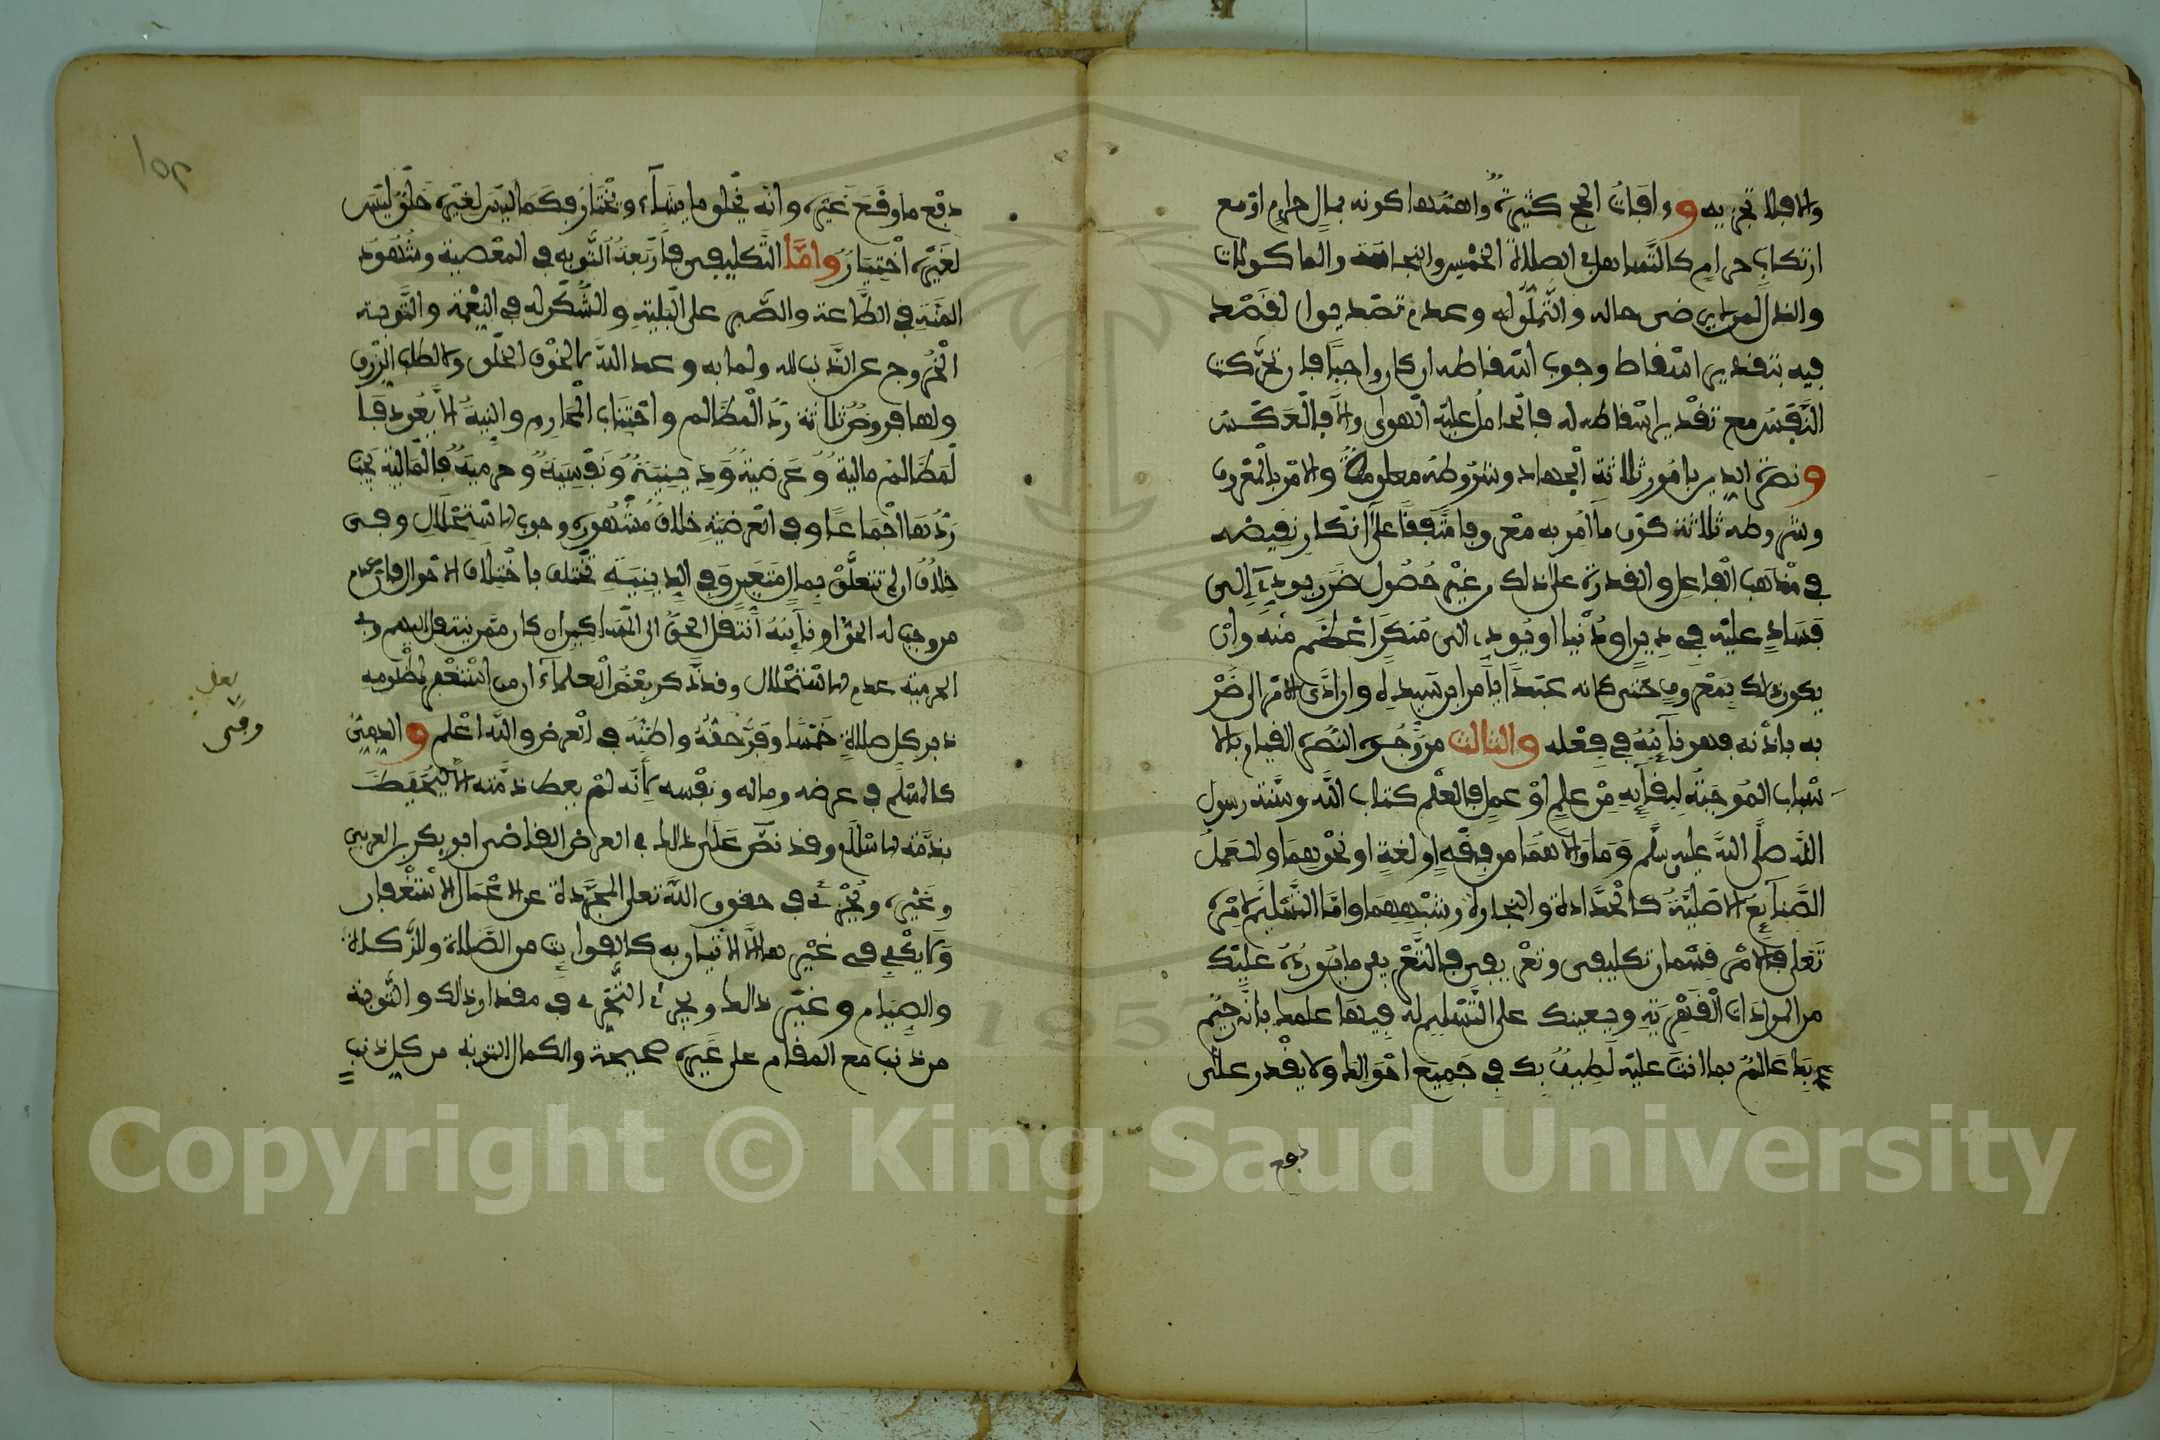 والا فلا تجزيه وءافات الحج كثيرة واهمها كونه بمال حرام او مع
ارتكاب حرام كالتساهل في الصلاة الخمس والنجاسة والماكولات
والنذال لمن لا يرضى حاله والتملق له وعدم تصديق ال لقصد
فيه بتقدير اسقاط وجوب اسقاطه ان كان واجبا فان تحركت
النفس مع تقدير اسقاطه له فالحامل عليه الهوى والا فالعكس
ونصرة الدين بامور ثلاثة الجهاد وشروطه معلومة والامر بالمعروف
وشروطه ثلاثة كون ما امر به معروفا متفقا على انكار نقيضه
في مذاهب الفاعل والقدرة على ذلك من غير حصول ضرر يودي الى
فساد عليه في دين او دنيا او يودي الى منكر اعظم منه وان
يكون ذلك بمعروف حتى كانه عبدا يامر ابن سيده وان ادى الامر الى ضر
به باذنه فهو نائبه في فعله والثالث من وجوه النصرة القيام بالا
سباب الموجبة لبقائه من علم او عمل فالعلم كتاب الله وسنة رسول
الله صلى الله عليه وسلم وما والاهما من فقه او لغة او نحوهما والعمل
الصنائع الاصلية كالحدادة والنجارة وشبههما واما التسليم لامره
تعلى فالامر قسمان تكليفي وتعريفي فالتعريفي ما يورده عليك
من المرادات القهرية ويعينك على التسليم له فيها علمك بانه حكيم
بك عالم بما انت عليه لطيف بك في جميع احوالك ولا يقدر على
دفع
١٥٢
دفع ما وقع غيره وانه يخلق ما يشاء ويختار فكما ليس لغيره خلق ليس
لغيره اختيار واما التكليفي فاربعة التوبة في المعصية وشهود
المنة في الطاعة والصبر على البلية والشكر له في النعمة والتوبة
الخروج عن الذنب لله ولما به وعد الله لا لخوف الخلق ولا لطلب الرزق
ولها فروض ثلاثة رد المظالم واجتناب المحارم والنية الا يعود فا
لمظالم مالية وعرضية ودينية ونفسية وحرمية فالمالية يجب
ردها اجماعا وفي العرضية خلاف مشهوره وجوب الاستحلال وفي
خلاف ان لم تتعلق بمال متعين وفي الدينية تختلف باختلاف الاحوال فان عدم
من وجب له الحق او نائبه انتقل الحق الى المساكين ان كان ممن ينتقل اليهم وفي
الحرمية عدم الاستحلال وقد ذكر بعض العلماء ان من استغفر لمظلومه
دبر كل صلاة خمسا وفر حقه واظنه في العرض والله اعلم والذمي
كالمسلم في عرضه وماله ونفسه لانه لم يعط ذمته الا ليحفظ
بذمة الاسلام وقد نص على ذلك في العرض القاضي ابو بكر بن العربي
وغيره ويجزئ في حقوق الله تعلى المجردة عن الاعمال الاستغفار
ولا يكفي في غيرها الا الاتيان به كالفوايت من الصلاة والزكاة
والصيام وغير ذلك ويجزئ التحري في مقدار ذلك والتوبة
من ذنب مع المقام على غيره صحيحة والكمال التوبة من كل ذنب